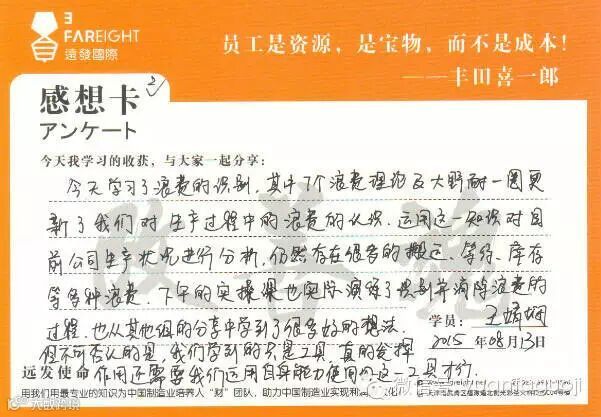 3
FAREIGHT
遠發國際
员工是资源，是宝物，而不是成本！
——丰田喜一郎
感想卡
2
アンケート
今天我学习的收获，与大家一起分享：
今天学习了浪费的识别，其中7个浪费理论及大野耐一圈更
新了我们对生产过程中的浪费的认识。运用这一知识对目
前公司生产状况进行分析，仍然存在很多的搬运、等待、库存
等多种浪费。下午的实操课也实际演练了识别并消除浪费的
过程，也从其他组的分享中学到了很多好的想法。
学员：王
但不可否认的是，我们学到的只是工具，真的发挥
2015年08月13日
远发使命
作用还需要我们运用自身能力使用的这一工具才行。
用我们最专业的知识为中国制造业培养人“财”团队，助力中国制造业实现和